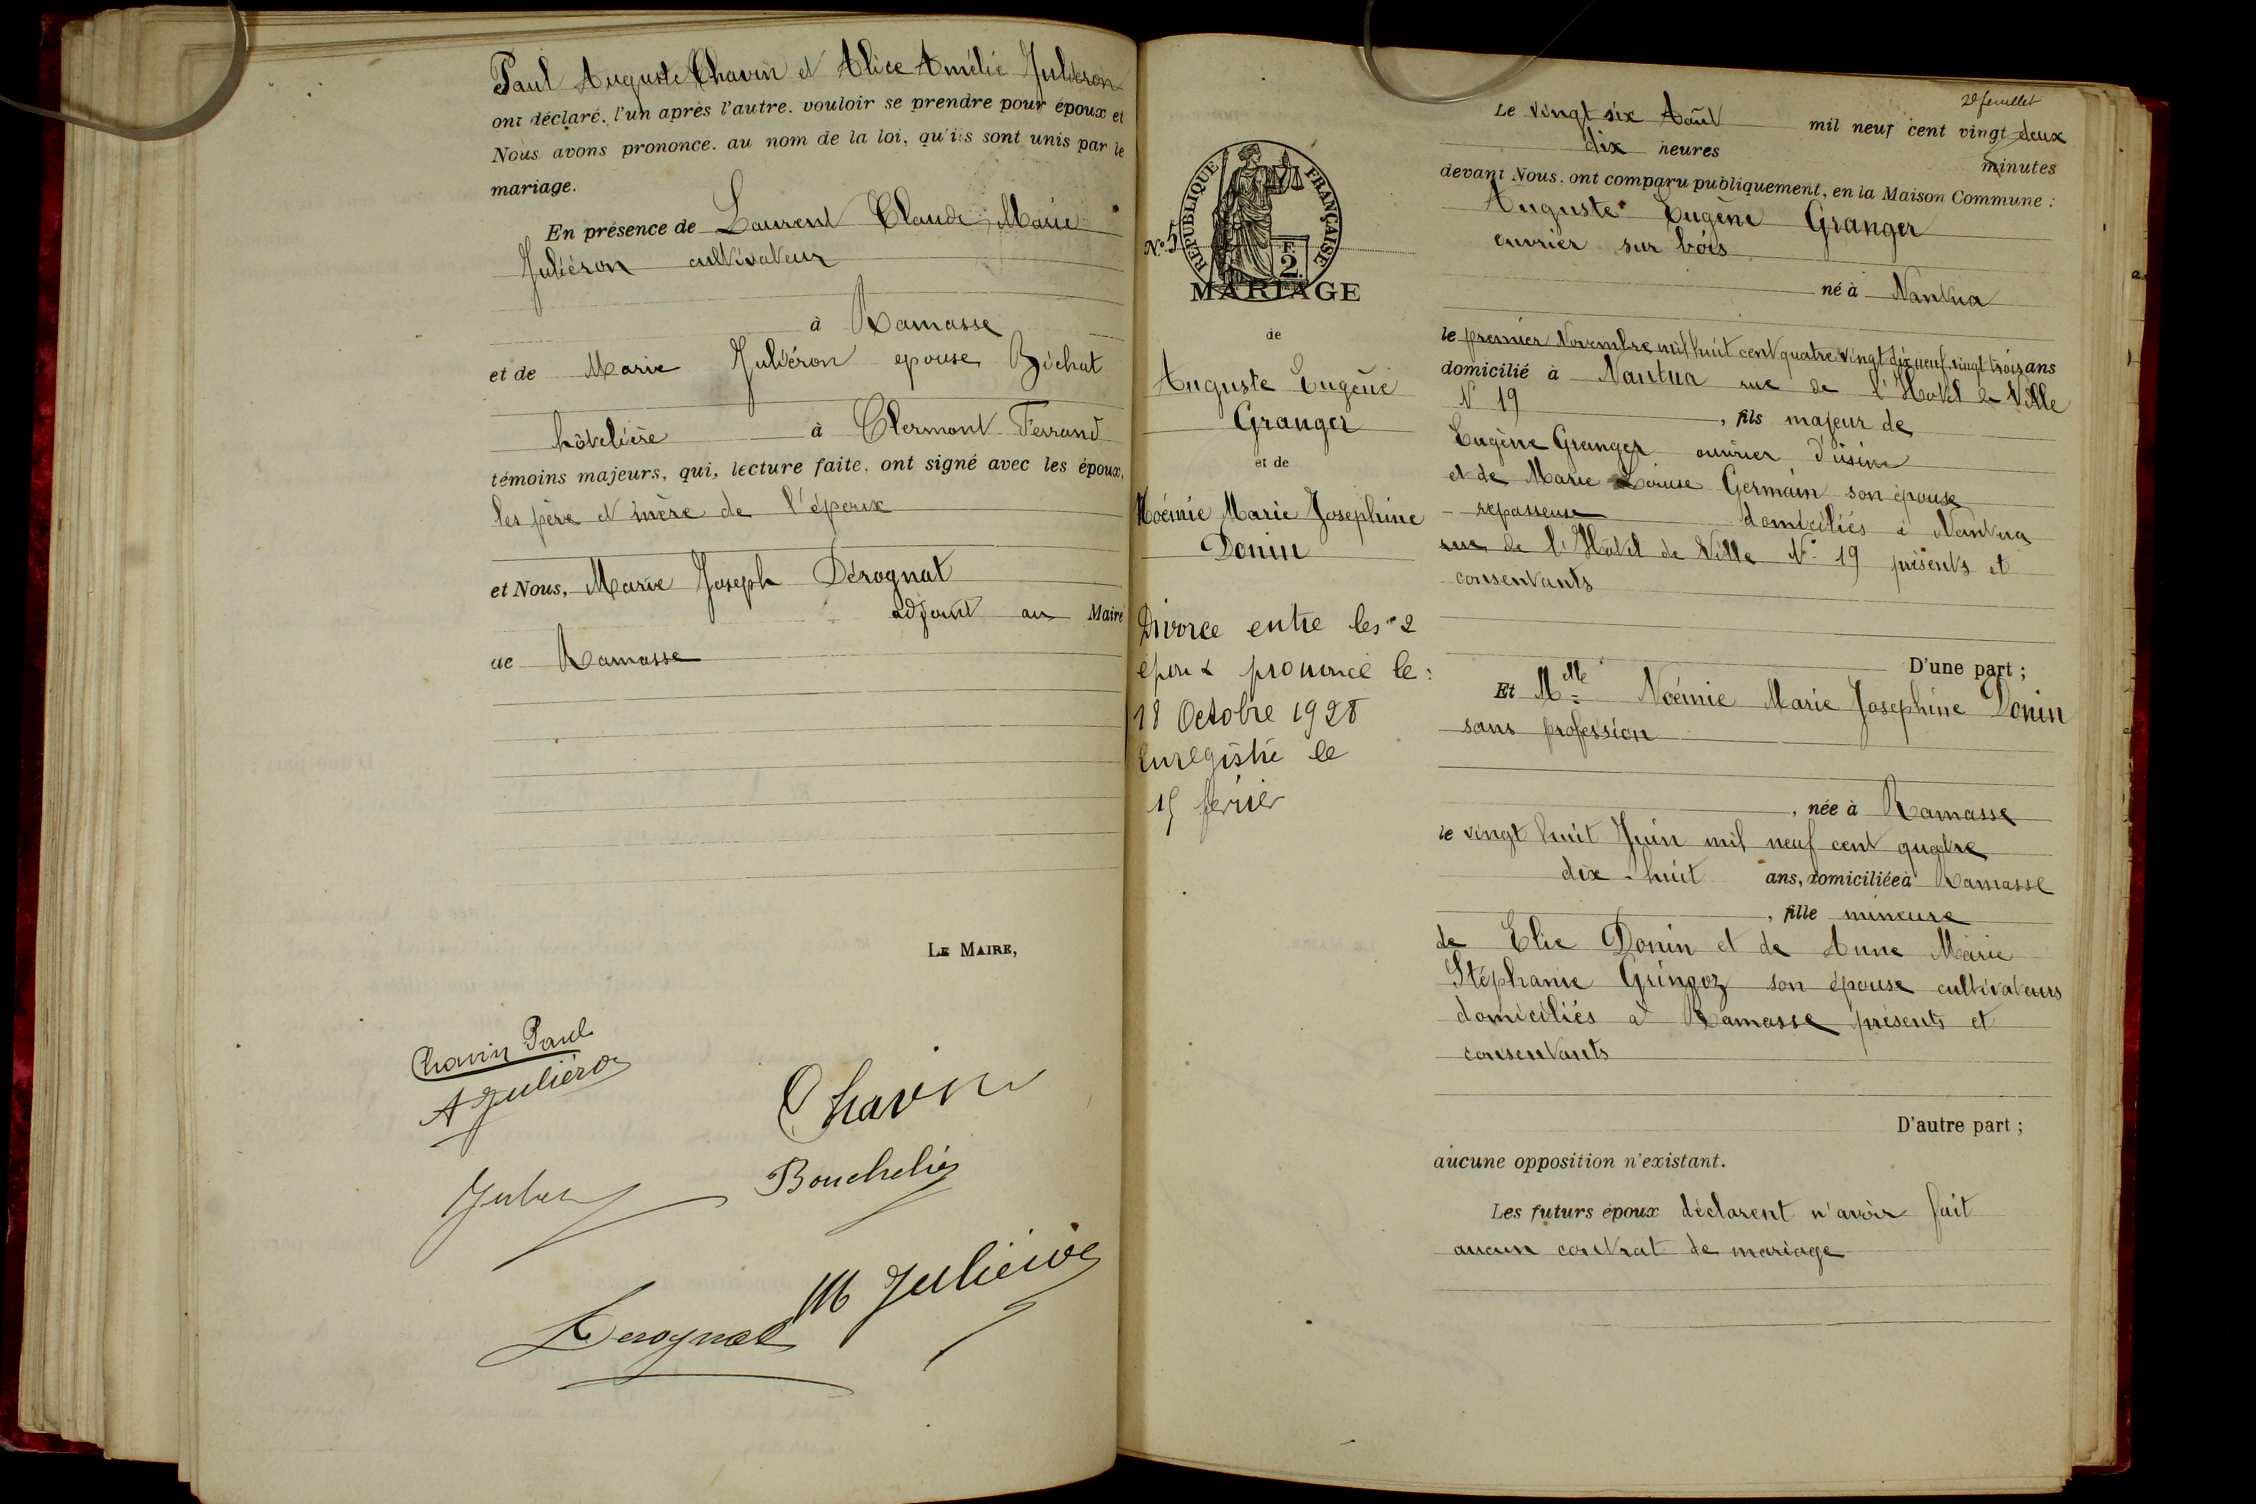 Paul Auguste Chavin et Alice Amélie Juliéron
ont déclaré. l'un après l'autre. vouloir se prendre pour époux et
Nous avons prononcé. au nom de la loi, qu'ils sont unis par le
mariage.
En présence de Laurent Claude Marie
Juliéron cultivateur
à Ramasse
et de Marie Juliéron épouse Béchat
hôtelière à Clermont Ferrand
témoins majeurs, qui, lecture faite, ont signé avec les époux,
les père et mère de l'époux
et Nous, Marie Joseph Dérognat
adjoint au Maire
de Ramasse
LE MAIRE,
Chavin Paul
A Juliéron
Chavin
Bouchelié
M Juliéron
Derognat
2e feuillet
Le vingt six Août mil neuf cent vingt deux
dix heures minutes
devant Nous. ont comparu publiquement, en la Maison Commune :
Auguste Eugène Granger
ouvrier sur bois
né à Nantua
le premier Novembre mil huit cent quatre vingt dix neuf vingt trois ans
domicilié à Nantua rue de l'Hotel de Ville
N° 19, fils majeur de
Eugène Granger ouvrier d'usine
et de Marie Louise Germain son épouse
repasseuse domiciliés à Nantua
rue de l'Hotel de Ville N° 19 présents et
consentants
D'une part ;
Et Mlle Noémie Marie Josephine Donin
sans profession
, née à Ramasse
le vingt huit Juin mil neuf cent quatre
dix-huit ans, domiciliée à Ramasse
, fille mineure
de Elie Donin et de Anne Marie
Stéphanie Gringoz son épouse cultivateurs
domiciliés à Ramasse présents et
consentants
D'autre part ;
aucune opposition n'existant.
Les futurs époux déclarent n'avoir fait
aucun contrat de mariage
N° 5
RÉPUBLIQUE FRANÇAISE
F.
2
MARIAGE
de
Auguste Eugène
Granger
et de
Noémie Marie Josephine
Donin
Divorce entre les 2
époux prononcé le :
18 Octobre 1928
Enregistré le
15 février